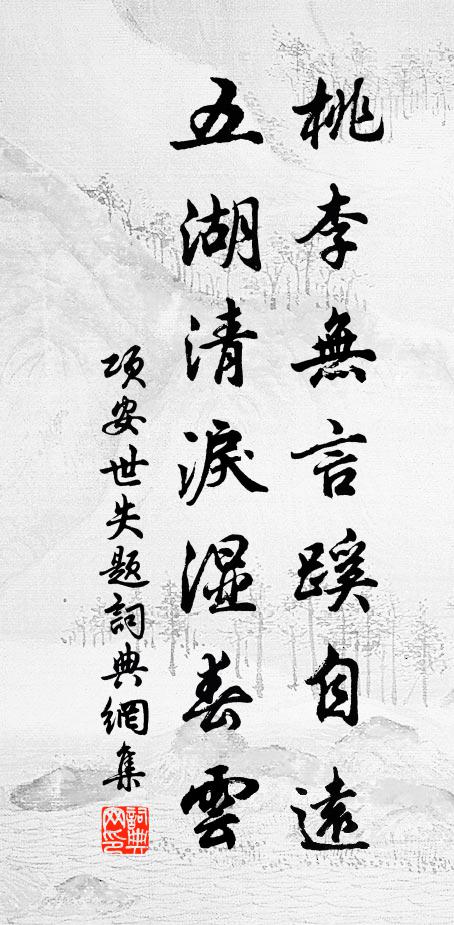 桃李無言蹊自遠
五湖清淚濕春雲
項安世失題詞典網集
詞典網印